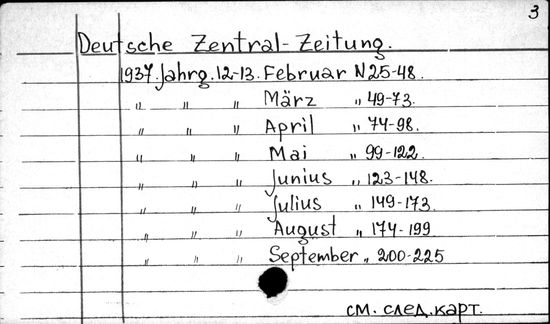 3
Deutsche Zentral-Zeitung.
1937. Jahrg. 12-13. Februar N 25-48.
" " " März " 49-73.
" " " April " 74-98.
" " " Mai " 99-122.
" " " Junius " 123-148.
" " " Julius " 149-173
" " " August " 174-199
" " " September " 200-225
см. след. карт.